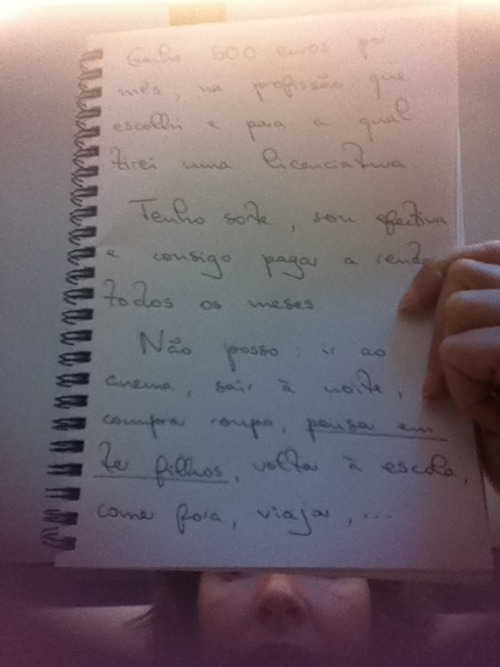 Ganho 600 euros por
mês, na profissão que
escolhi e para a qual
tirei uma licenciatura.
Tenho sorte, sou efectiva
e consigo pagar a renda
todos os meses
Não posso: ir ao
cinema, sair à noite,
comprar roupa, pensar em
ter filhos, voltar à escola,
comer fora, viajar, ...